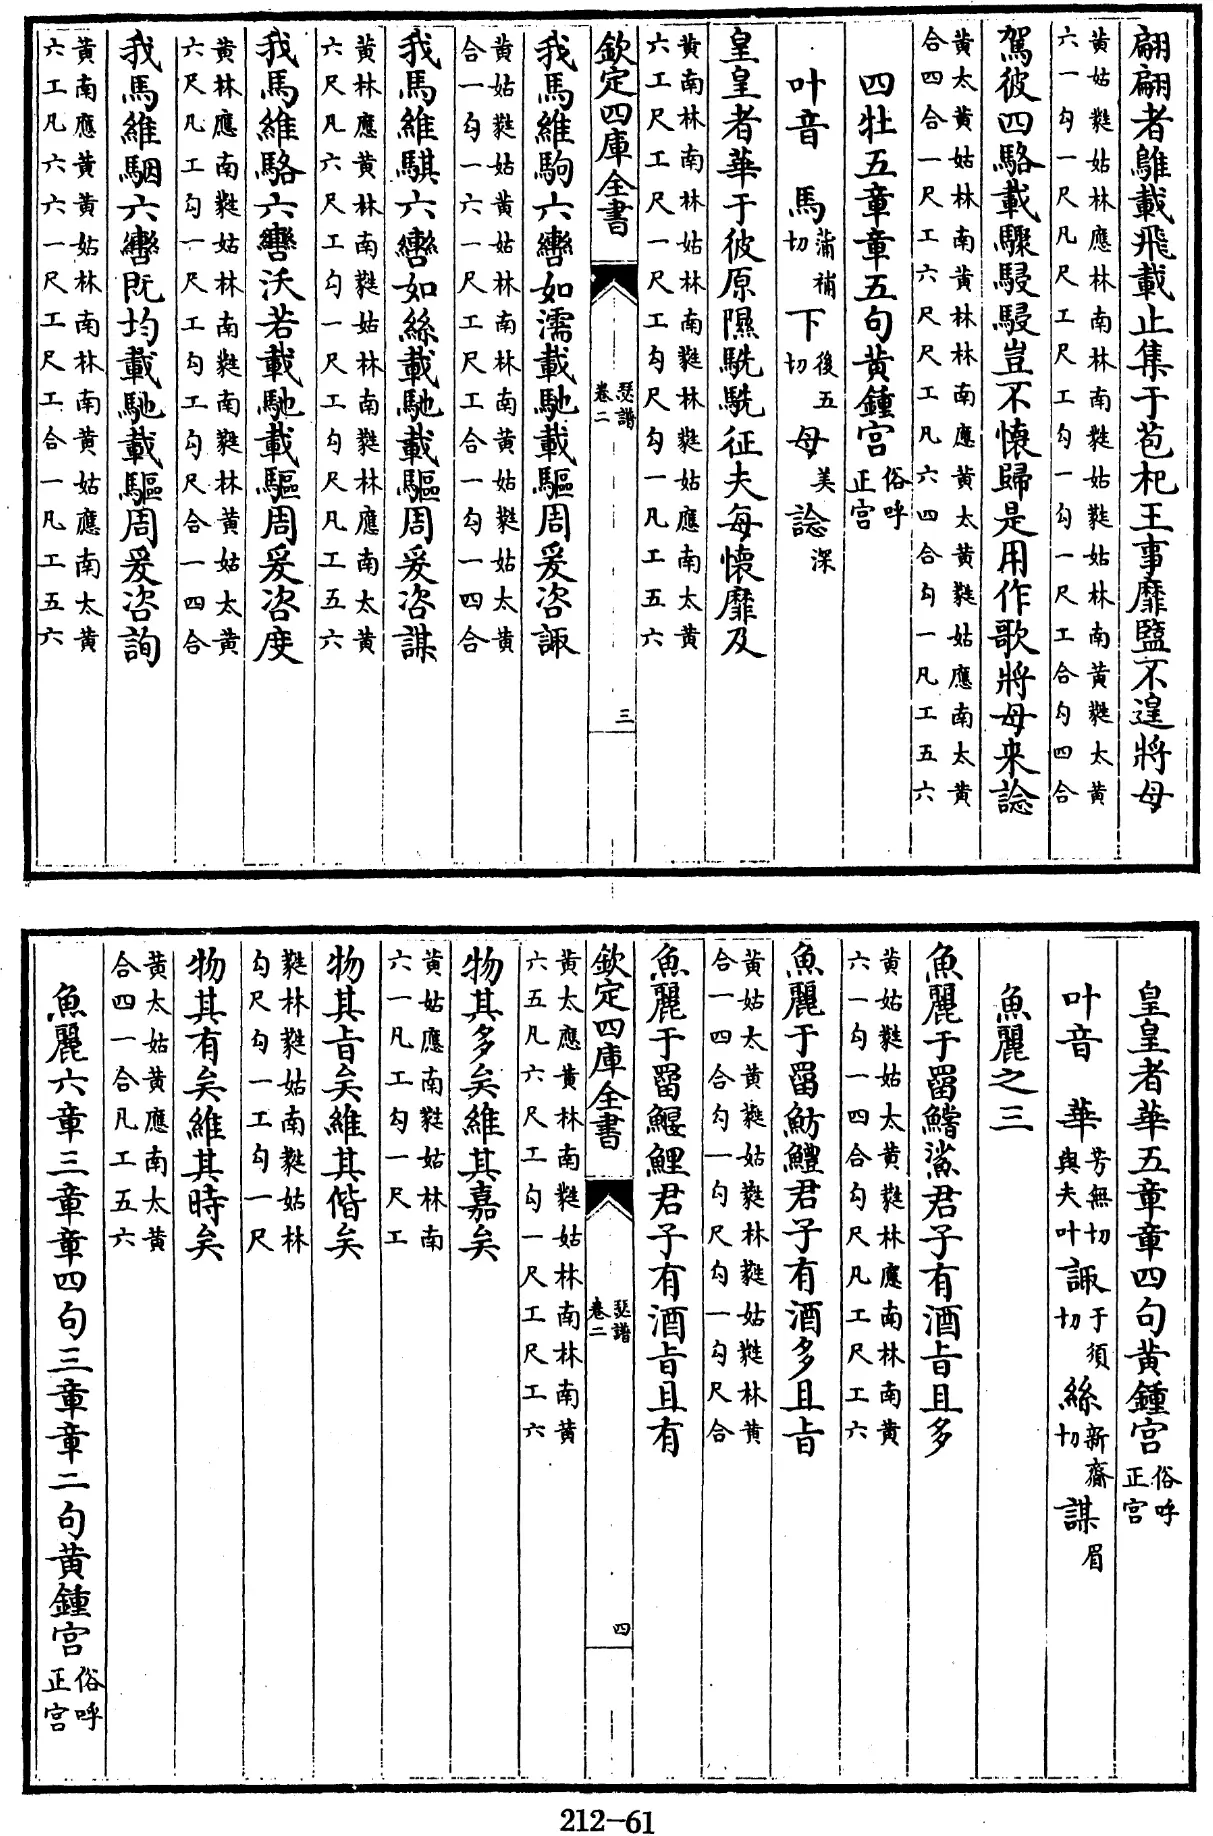 翩翩者鵻載飛載止集于苞杞王事靡盬不遑將母
黃姑蕤姑林應林南林南蕤姑蕤姑林南黃蕤太黃
六一勾一尺凡尺工尺工勾一勾一尺工合勾四合
駕彼四駱載驟駸駸豈不懷歸是用作歌將母來諗
黃太黃姑林南黃林林南應黃太黃蕤姑應南太黃
合四合一尺工六尺尺工凡六四合勾一凡工五六
四牡五章章五句黃鍾宮俗呼正宮
叶音 馬蒲補切 下後五切 母美 諗深
皇皇者華于彼原隰駪駪征夫每懷靡及
黃南林南林姑林南蕤林蕤姑應南太黃
六工尺工尺一尺工勾尺勾一凡工五六
欽定四庫全書 瑟譜 卷二 三
我馬維駒六轡如濡載馳載驅周爰咨諏
黃姑蕤姑黃姑林南林南黃姑蕤姑太黃
合一勾一六一尺工尺工合一勾一四合
我馬維騏六轡如絲載馳載驅周爰咨謀
黃林應黃林南蕤姑林南蕤林應南太黃
六尺凡六尺工勾一尺工勾尺凡工五六
我馬維駱六轡沃若載馳載驅周爰咨度
黃林應南蕤姑林南蕤南蕤林黃姑太黃
六尺凡工勾一尺工勾工勾尺合一四合
我馬維駰六轡既均載馳載驅周爰咨詢
黃南應黃黃姑林南林南黃姑應南太黃
六工凡六六一尺工尺工合一凡工五六
皇皇者華五章章四句黃鍾宮俗呼正宮
叶音 華芳無切與夫叶 諏于須切 絲新齎切 謀眉
魚麗之三
魚麗于罶鱨鯊君子有酒旨且多
黃姑蕤姑太黃蕤林應南林南黃
六一勾一四合勾尺凡工尺工六
魚麗于罶魴鱧君子有酒多且旨
黃姑太黃蕤姑蕤林蕤姑蕤林黃
合一四合勾一勾尺勾一勾尺合
魚麗于罶鰋鯉君子有酒旨且有
黃太應黃林南蕤姑林南林南黃
六五凡六尺工勾一尺工尺工六
欽定四庫全書 瑟譜 卷二 四
物其多矣維其嘉矣
黃姑應南蕤姑林南
六一凡工勾一尺工
物其旨矣維其偕矣
蕤林蕤姑南蕤姑林
勾尺勾一工勾一尺
物其有矣維其時矣
黃太姑黃應南太黃
合四一合凡工五六
魚麗六章三章章四句三章章二句黃鍾宮俗呼正宮
212-61